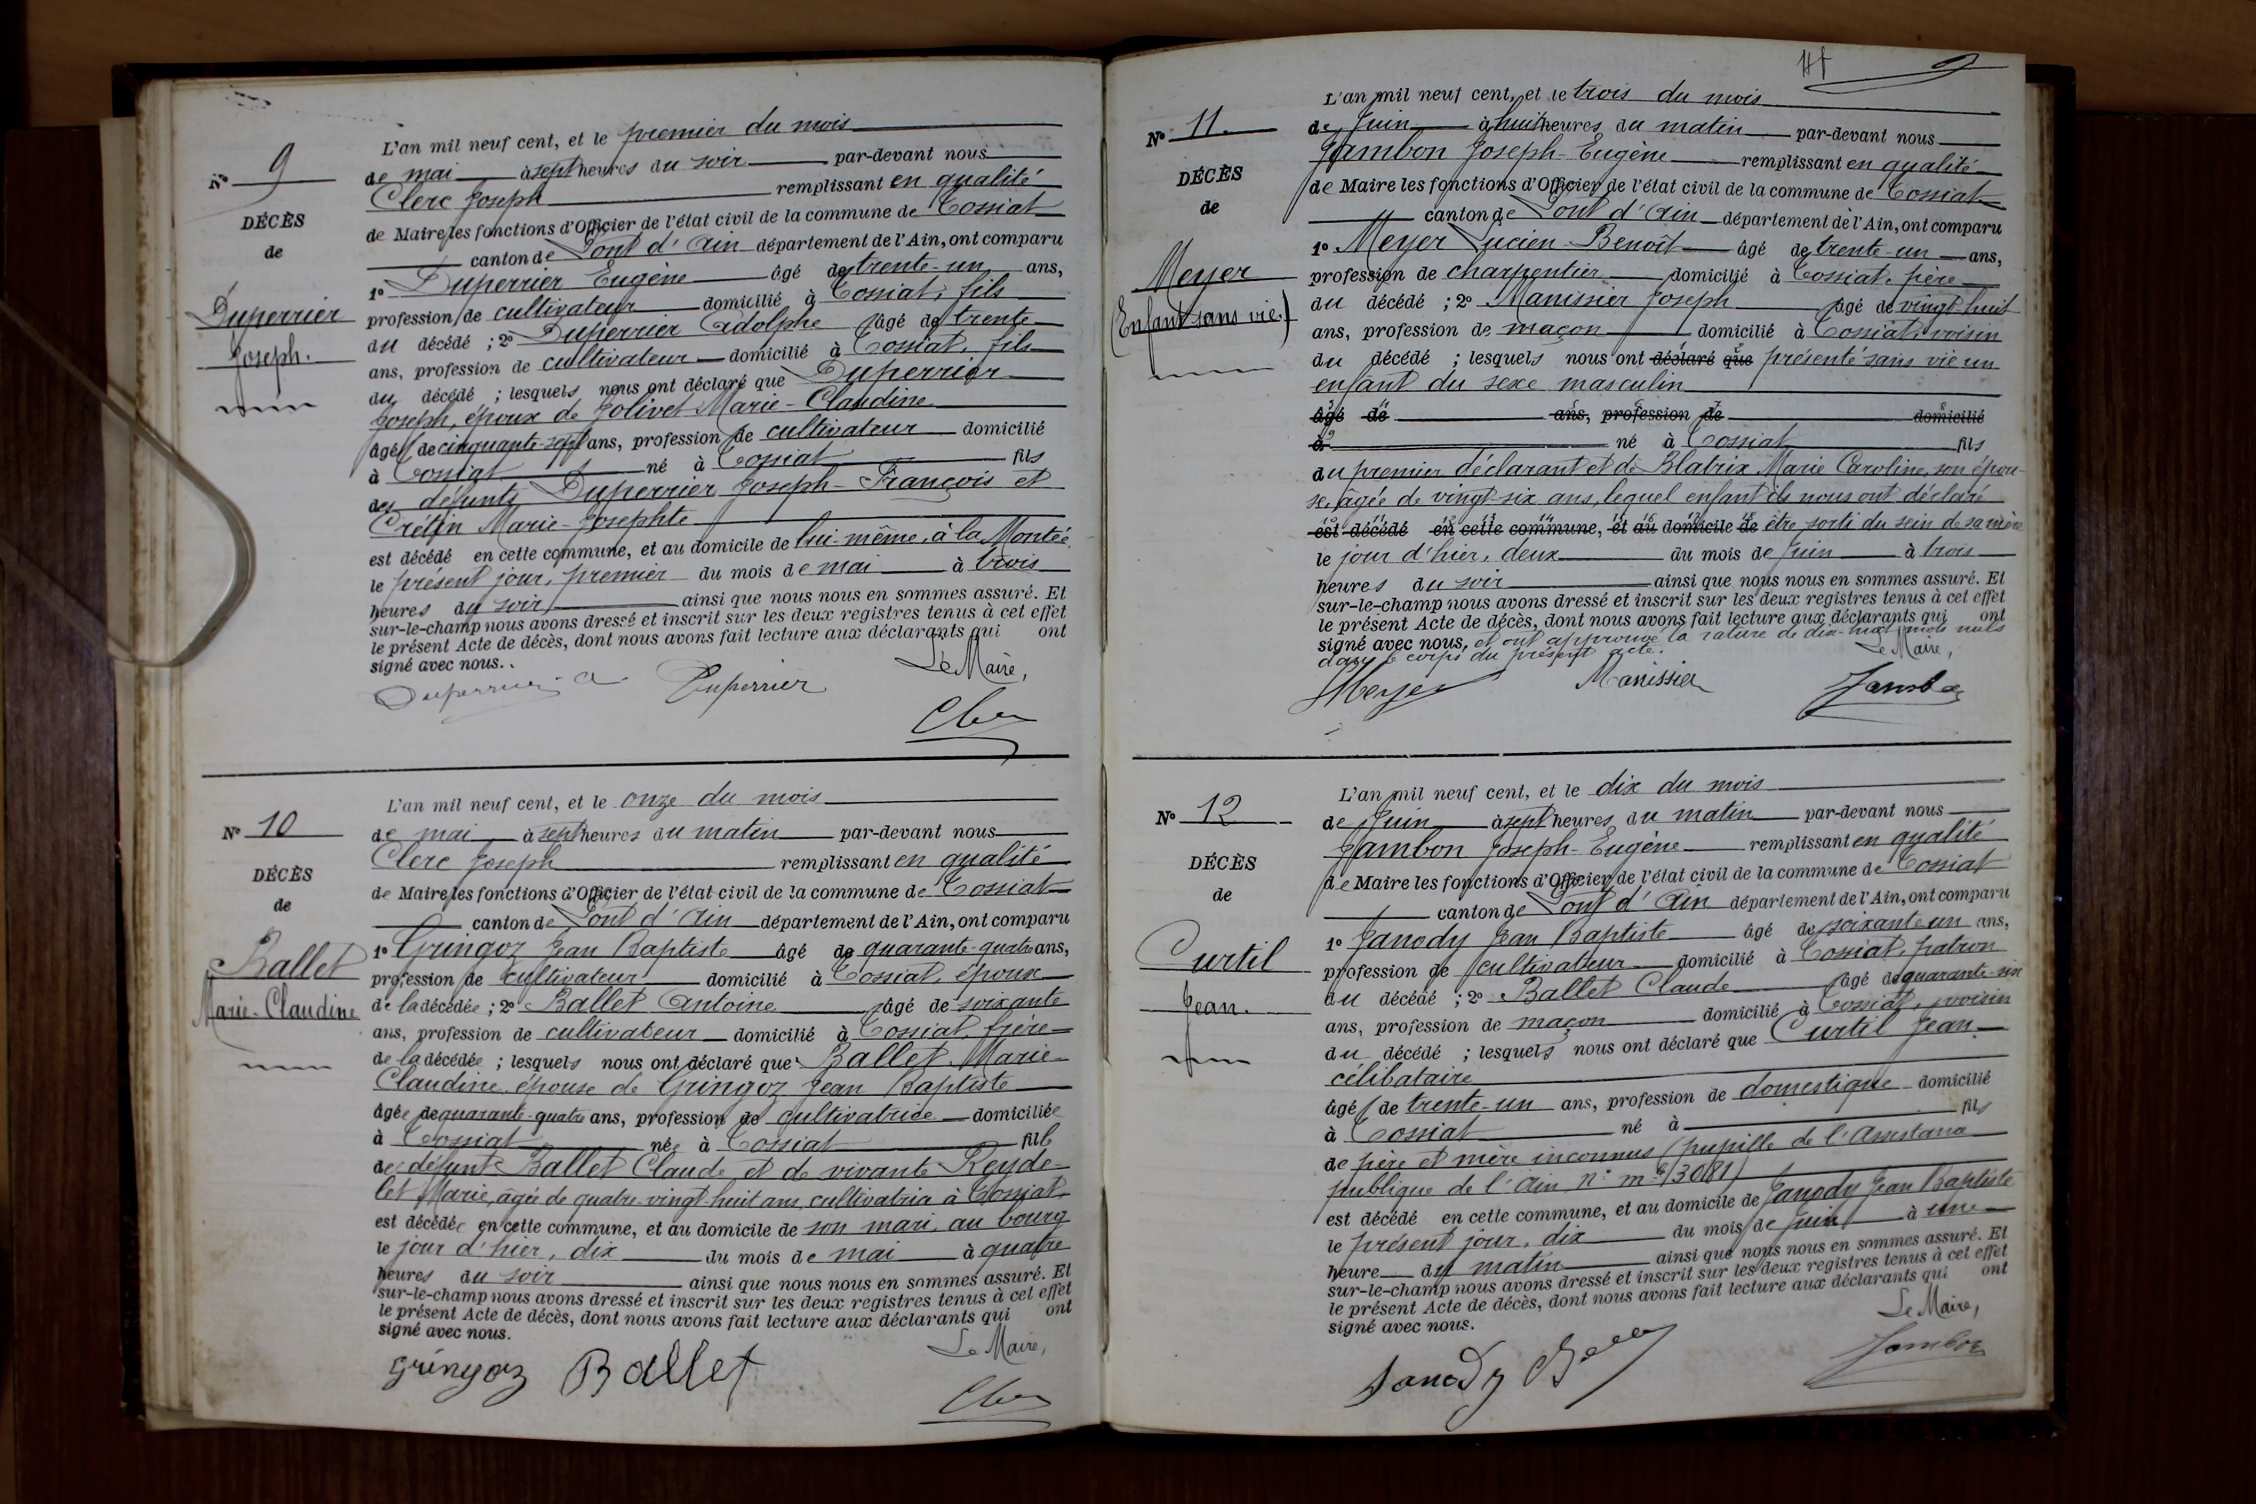 N° 9
DÉCÈS
de
Duperrier
Joseph.
L'an mil neuf cent, et le premier du mois
de mai à sept heures du soir par-devant nous
Clerc Joseph remplissant en qualité
de Maire les fonctions d'Officier de l'état civil de la commune de Tossiat
canton de Pont d'Ain département de l'Ain, ont comparu
1° Duperrier Eugène âgé de trente-un ans,
profession de cultivateur domicilié à Tossiat, fils
du décédé ; 2° Duperrier Adolphe âgé de trente
ans, profession de cultivateur domicilié à Tossiat, fils
du décédé ; lesquels nous ont déclaré que Duperrier
Joseph, époux de Jolivet Marie-Claudine
âgé de cinquante-sept ans, profession de cultivateur domicilié
à Tossiat né à Tossiat fils
des défunts Duperrier Joseph-François et
Crétin Marie-Josephte
est décédé en cette commune, et au domicile de lui-même, à la Montée,
le présent jour, premier du mois de mai à trois
heures du soir ainsi que nous nous en sommes assuré. Et
sur-le-champ nous avons dressé et inscrit sur les deux registres tenus à cet effet
le présent Acte de décès, dont nous avons fait lecture aux déclarants qui ont
signé avec nous.
Le Maire,
Duperrier a Duperrier
Clerc
N° 10
DÉCÈS
de
Ballet
Marie-Claudine
L'an mil neuf cent, et le onze du mois
de mai à sept heures du matin par-devant nous
Clerc Joseph remplissant en qualité
de Maire les fonctions d'Officier de l'état civil de la commune de Tossiat
canton de Pont d'Ain département de l'Ain, ont comparu
1° Gringoz Jean Baptiste âgé de quarante-quatre ans,
profession de cultivateur domicilié à Tossiat, époux
de la décédée ; 2° Ballet Antoine âgé de soixante
ans, profession de cultivateur domicilié à Tossiat, frère
de la décédée ; lesquels nous ont déclaré que Ballet Marie-
Claudine, épouse de Gringoz Jean Baptiste
âgée de quarante-quatre ans, profession de cultivatrice domiciliée
à Tossiat née à Tossiat fille
de défunt Ballet Claude et de vivante Reyde-
let Marie, âgée de quatre-vingt-huit ans, cultivatrice à Tossiat,
est décédée en cette commune, et au domicile de son mari, au bourg
le jour d'hier, dix du mois de mai à quatre
heures du soir ainsi que nous nous en sommes assuré. Et
sur-le-champ nous avons dressé et inscrit sur les deux registres tenus à cet effet
le présent Acte de décès, dont nous avons fait lecture aux déclarants qui ont
signé avec nous.
Le Maire,
Gringoz Ballet
Clerc
9
N° 11.
DÉCÈS
de
Meyer
(Enfant sans vie.)
L'an mil neuf cent, et le trois du mois
de Juin à huit heures du matin par-devant nous
Jambon Joseph-Eugène remplissant en qualité
de Maire les fonctions d'Officier de l'état civil de la commune de Tossiat
canton de Pont d'Ain département de l'Ain, ont comparu
1° Meyer Lucien-Benoît âgé de trente-un ans,
profession de charpentier domicilié à Tossiat, père
du décédé ; 2° Manissier Joseph âgé de vingt-huit
ans, profession de maçon domicilié à Tossiat, voisin
du décédé ; lesquels nous ont déclaré que présenté sans vie un
enfant du sexe masculin
âgé de ans, profession de domicilié
à né à Tossiat fils
du premier déclarant et de Blatrix Marie Caroline, son épou-
se, âgée de vingt-six ans, lequel enfant ils nous ont déclaré
est décédé en cette commune, et au domicile de être sorti du sein de sa mère
le jour d'hier, deux du mois de Juin à trois
heures du soir ainsi que nous nous en sommes assuré. Et
sur-le-champ nous avons dressé et inscrit sur les deux registres tenus à cet effet
le présent Acte de décès, dont nous avons fait lecture aux déclarants qui ont
signé avec nous, et ont approuvé la rature de dix-huit mots nuls
dans le corps du présent acte.
Le Maire,
Meyer Manissier Jambon
N° 12
DÉCÈS
de
Curtil
Jean.
L'an mil neuf cent, et le dix du mois
de Juin à sept heures du matin par-devant nous
Jambon Joseph-Eugène remplissant en qualité
de Maire les fonctions d'Officier de l'état civil de la commune de Tossiat
canton de Pont d'Ain département de l'Ain, ont comparu
1° Janody Jean Baptiste âgé de soixante-un ans,
profession de cultivateur domicilié à Tossiat, patron
du décédé ; 2° Ballet Claude âgé de quarante-six
ans, profession de maçon domicilié à Tossiat, voisin
du décédé ; lesquels nous ont déclaré que Curtil Jean
célibataire
âgé de trente-un ans, profession de domestique domicilié
à Tossiat né à fils
de père et mère inconnus (pupille de l'Assistance
publique de l'Ain, N° mle 3081)
est décédé en cette commune, et au domicile de Janody Jean Baptiste
le présent jour, dix du mois de Juin à une
heure du matin ainsi que nous nous en sommes assuré. Et
sur-le-champ nous avons dressé et inscrit sur les deux registres tenus à cet effet
le présent Acte de décès, dont nous avons fait lecture aux déclarants qui ont
signé avec nous.
Le Maire,
Janody Jambon